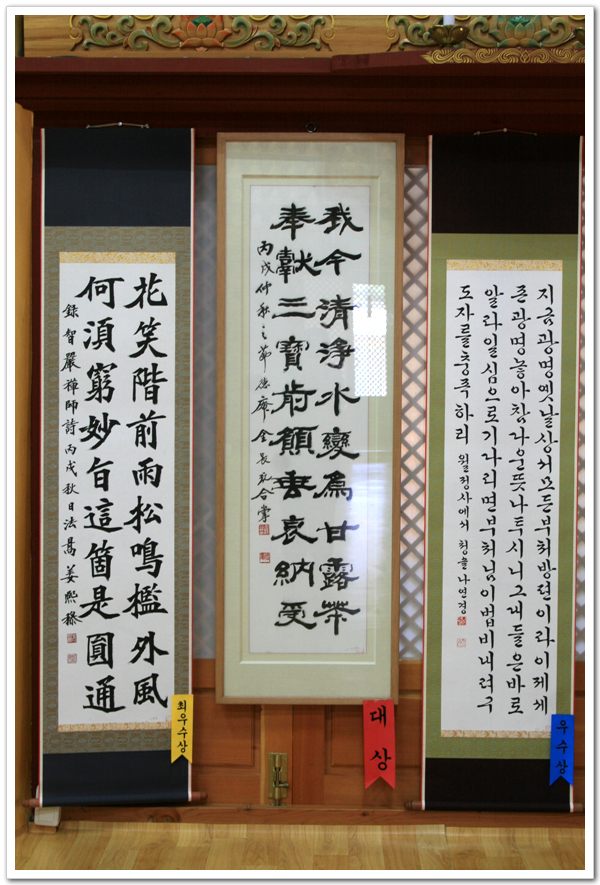 花笑階前雨松鳴檻外風
何須窮妙旨這箇是圓通
錄智嚴禪師詩丙戌秋日法
최우수상
我今清淨水變爲甘露茶
奉獻三寶前願垂哀納受
丙戌仲秋之節 合掌
대상
지금광명옛날상서모든부처방편이라이제세
존광명놓아참다운뜻나투시니그대들은바로
알라일심으로기다리면부처님이법비내려구
도자를충족하리 월정사에서 나인경
우수상